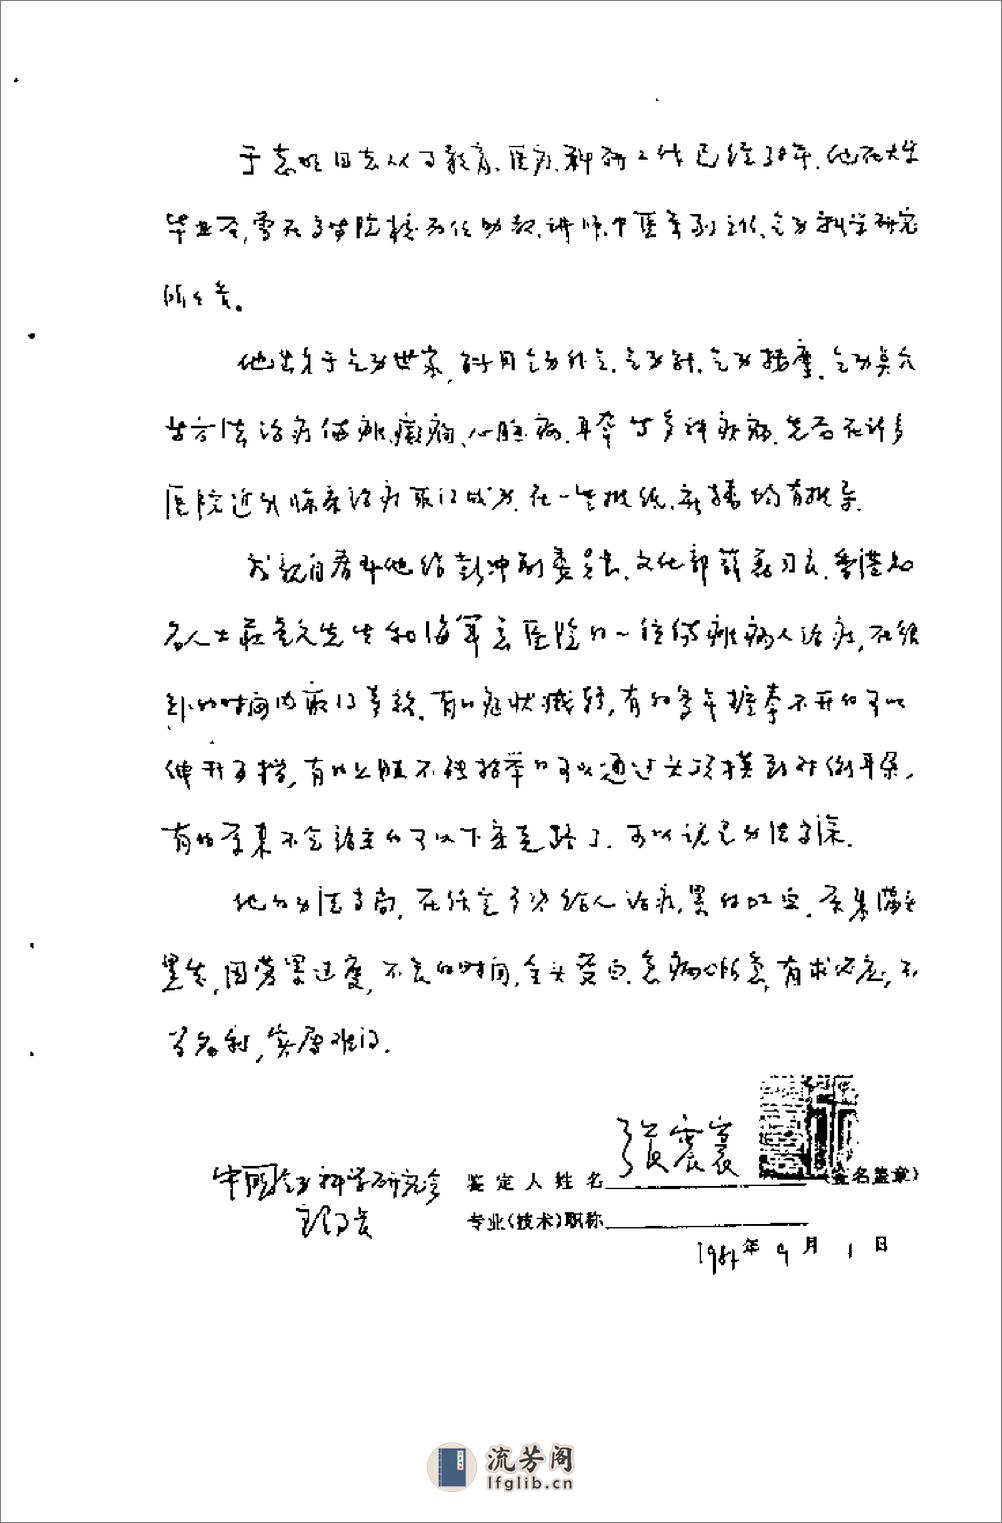 于志明同志从事教育、医疗、科研工作已经30年。他在大学
毕业后,曾在高等院校历任助教、讲师、中医系副主任、气功科学研究
所所长。
他出身于气功世家,采用气功外气、气功针、气功按摩、气功点穴
等方法治疗偏瘫、癫痫、心脏病、耳聋等多种疾病,先后在许多
医院进行临床治疗取得成效,在一些报纸、广播均有报导。
我亲自看到他给彭冲副委员长、文化部薛司长、香港知
名人士庄先生和海军总医院的一位偏瘫病人治疗,在很
短的时间内取得奇效。有的症状减轻,有的多年握拳不开的可以
伸开手指,有的上肢不能抬举的可以通过头顶摸到对侧耳朵,
有的原来不会站立的可以下床走路了。可以说是功法高深。
他的功法高尚,在住室多次给人治疗,累的吐血。原来满头
黑发,因劳累过度,不长的时间,全头变白。急病人所急,有求必应,不
为名利,实属难得。
中国气功科学研究会
理事长
鉴定人姓名 张震寰 (签名盖章)
专业(技术)职称
年9月1日
流芳阁
lfglib.cn